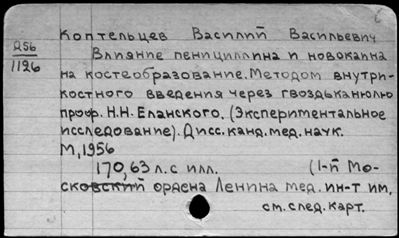 Коптельцев Василий Васильевич
Д56
1126
Влияние пенициллина и новокаина
на костеобразование. Методом внутри-
костного введения через гвоздьканюлю
проф. Н.Н. Еланского. (Экспериментальное
исследование). Дисс. канд. мед. наук.
М, 1956
170, 63 л. с илл. (1-й Мо-
сковский ордена Ленина мед. ин-т им,
см. след. карт.